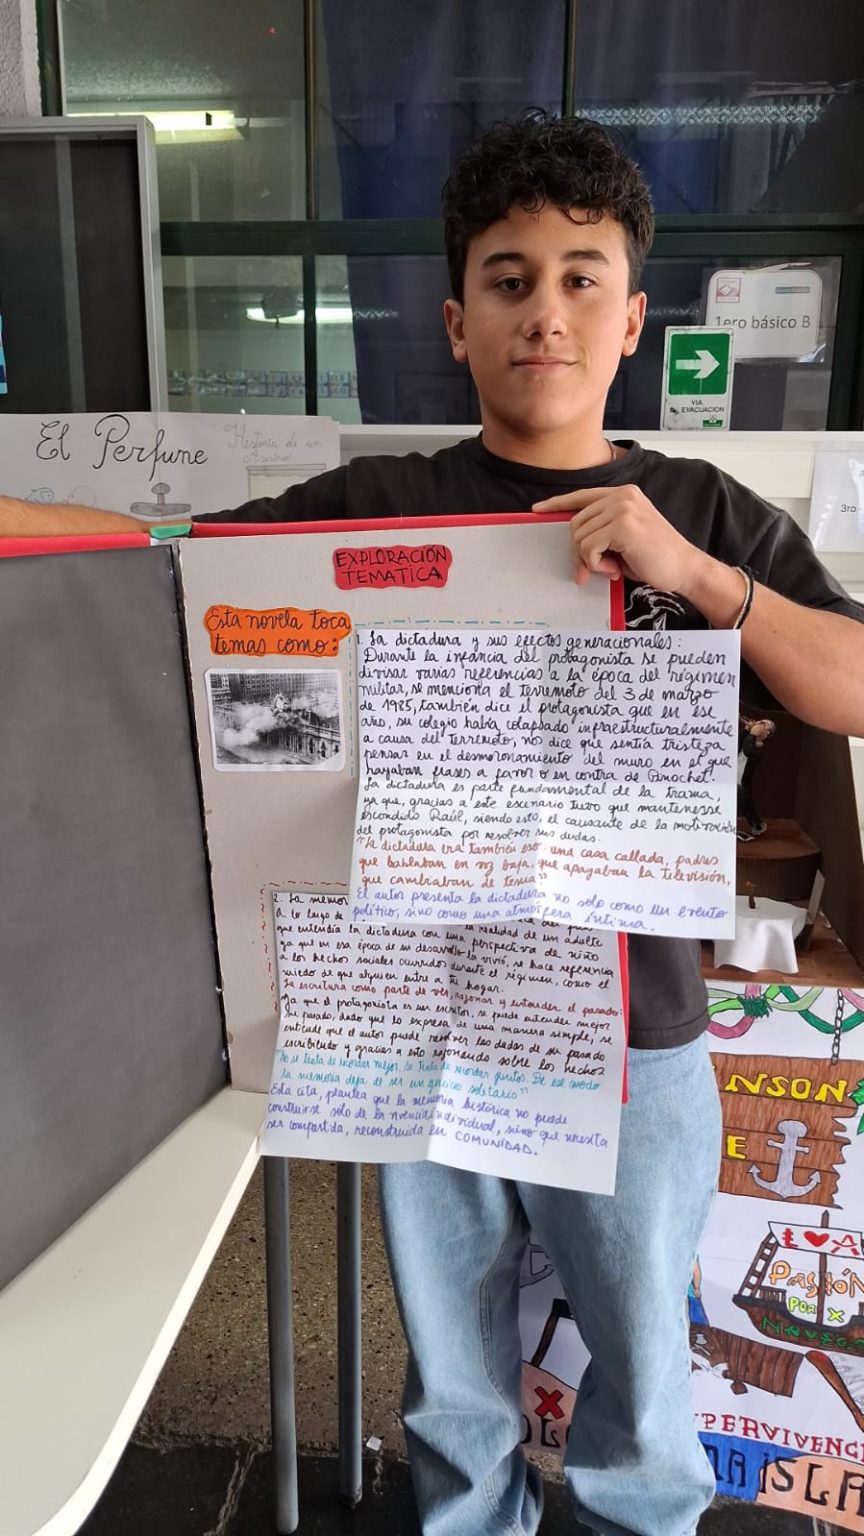 1ero básico B
VIA
EVACUACION
3ro
El Perfume
Historia de un
EXPLORACIÓN
TEMATICA
Esta novela toca
temas como:
1. La dictadura y sus efectos generacionales:
Durante la infancia del protagonista se pueden
divisar varias referencias a la época del régimen
militar, se menciona el terremoto del 3 de marzo
de 1985, también dice el protagonista que en ese
año, su colegio había colapsado infraestructuralmente
a causa del terremoto, nos dice que sentía tristeza
pensar en el desmoronamiento del muro en el que
hayaban frases a favor o en contra de Pinochet.
La dictadura es parte fundamental de la trama,
ya que, gracias a este escenario tuvo que mantenerse
escondido Raúl, siendo esto, el causante de la motivación
del protagonista por resolver sus dudas.
"La dictadura era también eso: una casa callada, padres
que hablaban en voz baja, que apagaban la televisión,
que cambiaban de tema"
El autor presenta la dictadura no solo como un evento
político, sino como una atmósfera íntima.
2. La memor
a lo largo de
que entendía la dictadura con una perspectiva de niño
la realidad de un adulto
ya que en esa época de su desarrollo la vivió, se hace referencia
a los hechos sociales ocurridos durante el régimen, como el
miedo de que alguien entre a tu hogar.
La escritura como parte de ver, razonar y entender el pasado:
Ya que el protagonista es un escritor, se puede entender mejor
su pasado, dado que lo expresa de una manera simple, se
entiende que el autor puede resolver las dudas de su pasado
escribiendo y gracias a esto razonando sobre los hechos
"No se trata de recordar mejor, se trata de recordar juntos. De ese modo
la memoria deja de ser un ejercicio solitario"
Esta cita, plantea que la memoria histórica no puede
construirse solo de la vivencia individual, sino que necesita
ser compartida, reconstruida en COMUNIDAD.
NSON
E
L ♥ A
PASIÓN
POR X
NAVEGA
PERVIVENCI
NA ISLA